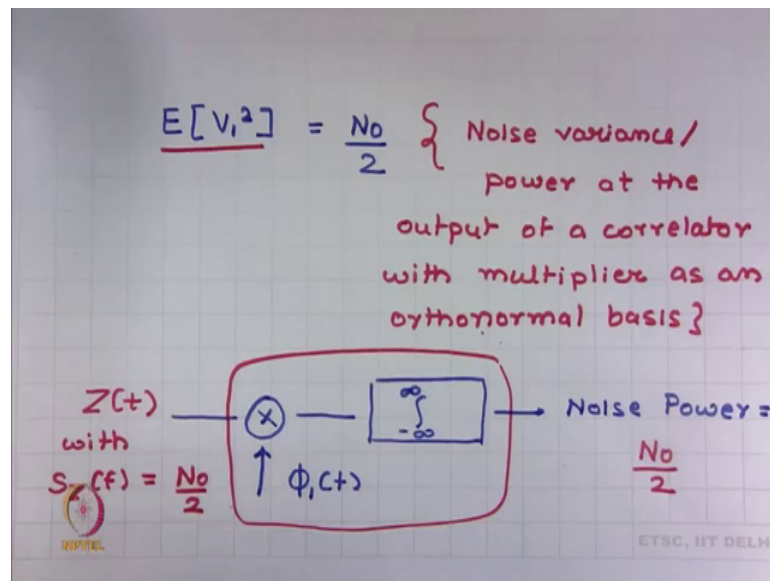 E[V₁²] = N₀/2 { Noise variance/
power at the
output of a correlator
with multiplier as an
orthonormal basis}
Z(t) ⊗ ∫_{-∞}^{∞} → Noise Power =
with
S_Z(f) = N₀/2 ↑ Φ₁(t) N₀/2
NPTEL
ETSC, IIT DELH